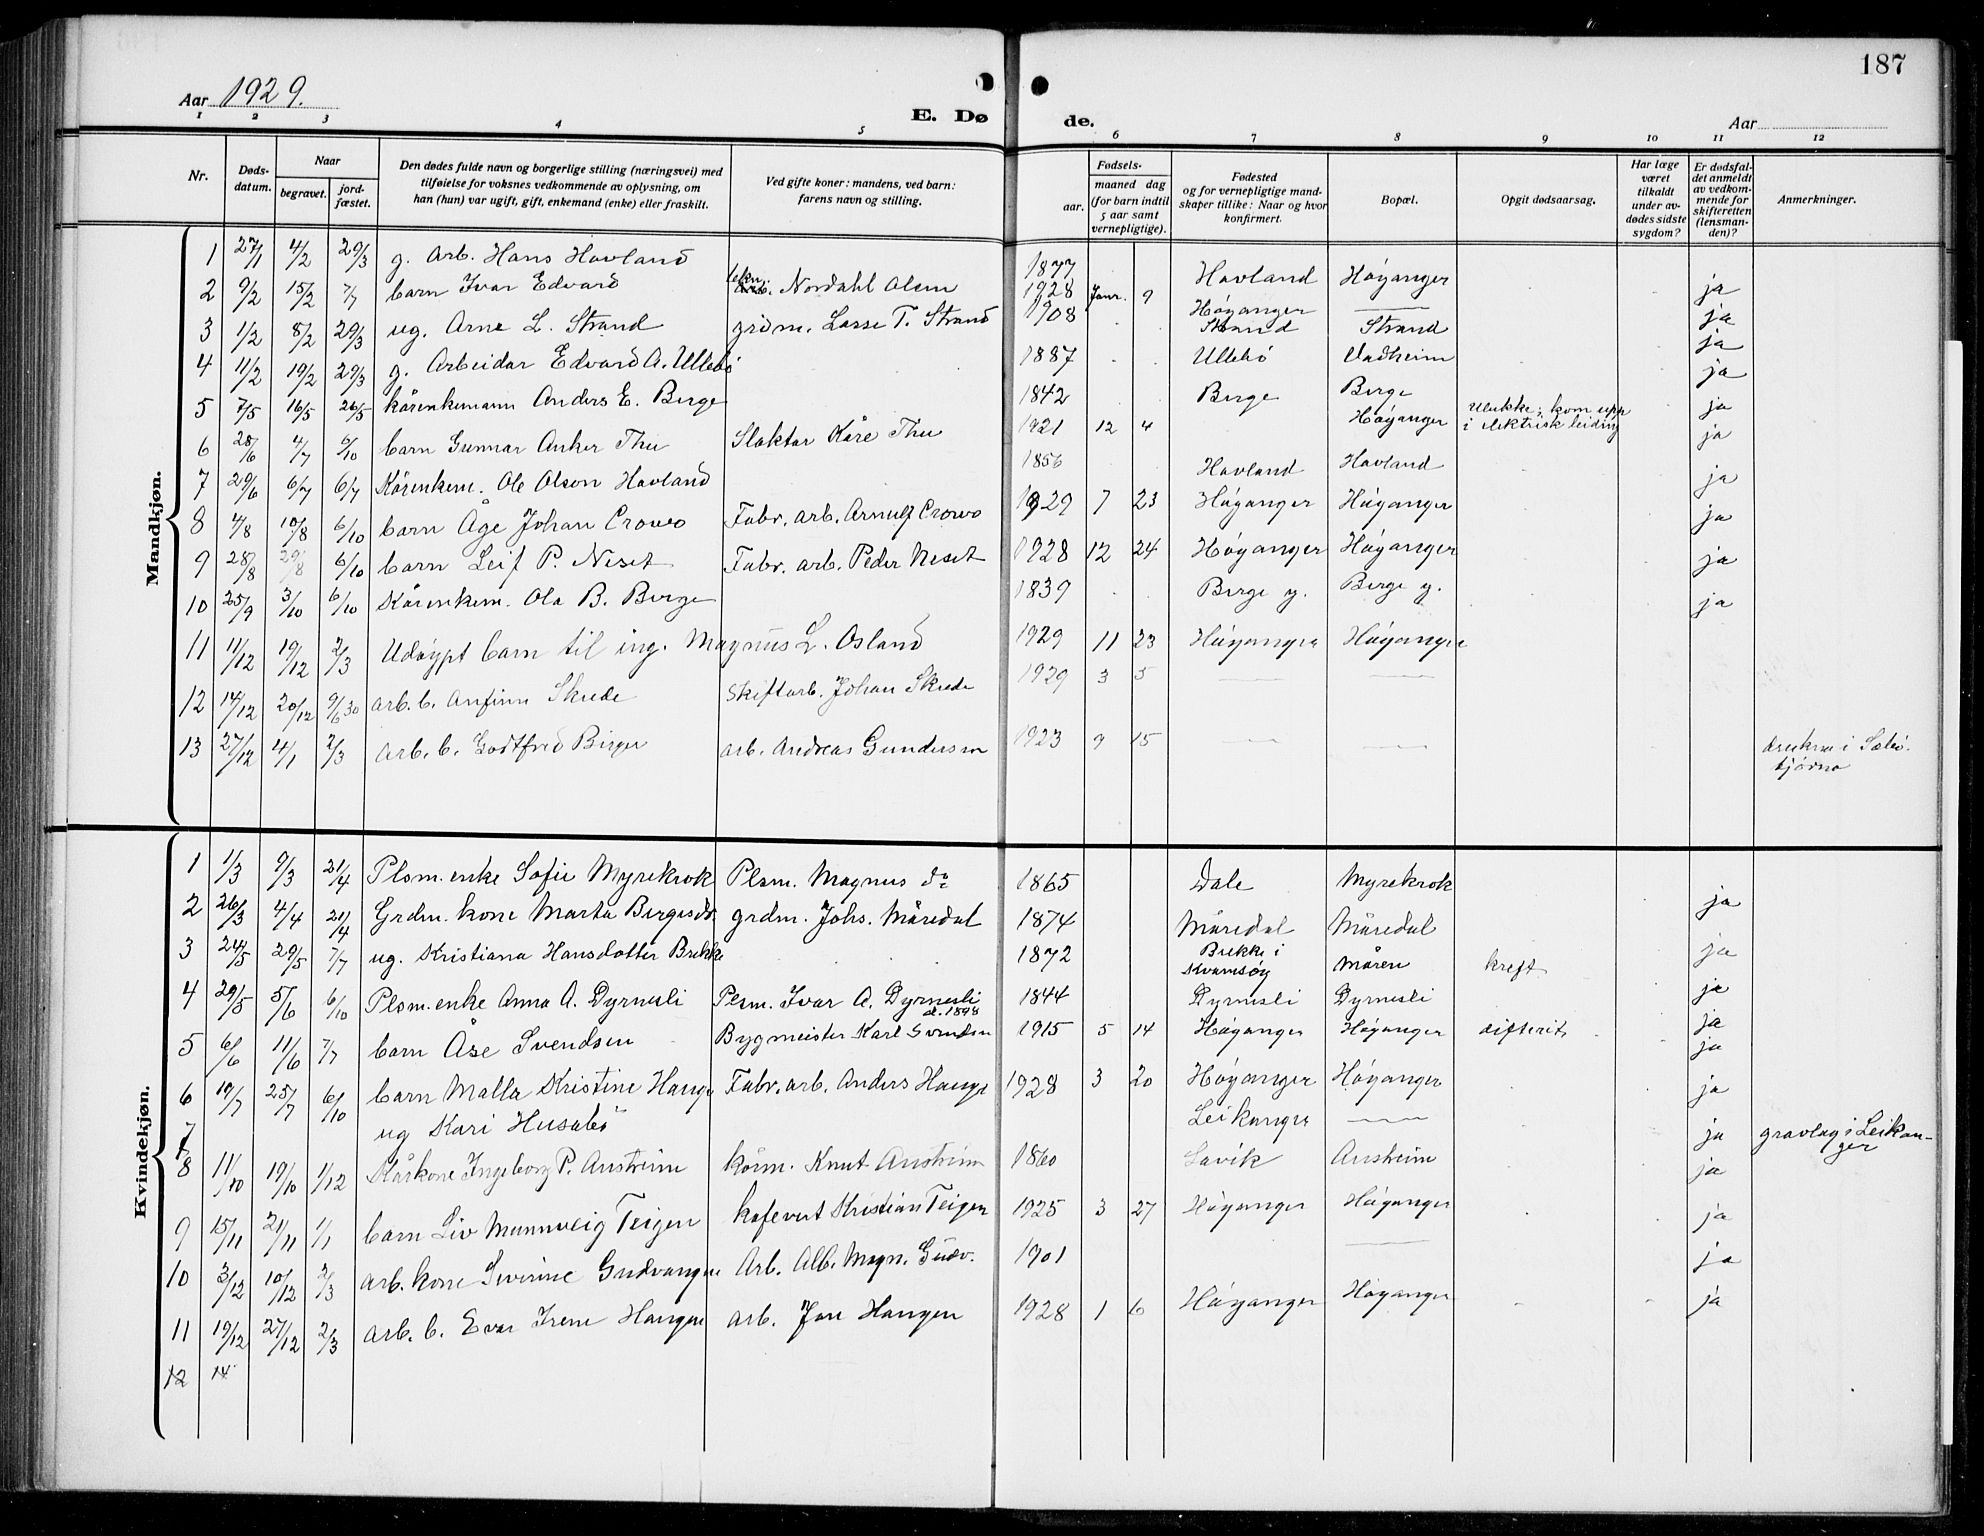 187
Aar 1929.
E. Døde.
Aar
1 2 3 4 5 6 7 8 9 10 11 12
Nr. | Døds-datum. | Naar begravet. | jord-fæstet. | Den dødes fulde navn og borgerlige stilling (næringsvei) med tilføielse for voksnes vedkommende av oplysning, om han (hun) var ugift, gift, enkemand (enke) eller fraskilt. | Ved gifte koner: mandens, ved barn: farens navn og stilling. | Fødsels- aar. | maaned dag (for barn indtil 5 aar samt vernepligtige). | Fødested og for vernepligtige mandskaper tillike: Naar og hvor konfirmert. | Bopæl. | Opgit dødsaarsag. | Har læge været tilkaldt under avdødes sidste sygdom? | Er dødsfaldet anmeldt av vedkommende for skifteretten (lensmanden)? | Anmerkninger.
Mandkjøn.
1 27/1 4/2 29/3 g. Arb. Hans Hovland 1877 Hovland Høyanger ja
2 9/2 15/2 7/7 barn Ivar Edvard Nordahl Olsen 1928 Janr. 9 Høyanger — ja
3 1/2 8/2 29/3 ug. Arne L. Strand grdm. Lasse T. Strand 1908 Strand Strand ja
4 11/2 19/2 29/3 g. Arbeidar Edvard A. Ullebø 1887 Ullebø Vadheim ja
5 7/5 16/5 26/5 kårenkemann Anders E. Berge 1842 Berge Berge ja
6 28/6 4/7 6/10 barn Gunnar Anker Thu Slaktar Kåre Thu 1921 12 4 Høyanger Ulukke; kom upp i elektrisk leidning ja
7 29/6 6/7 6/7 Kårenkem. Ole Olson Hovland 1856 Hovland Hovland ja
8 4/8 10/8 6/10 barn Åge Johan Crowo Fabr. arb. Arnulf Crowo 1929 7 23 Høyanger Høyanger ja
9 28/8 29/8 6/10 barn Leif P. Neset Fabr. arb. Peder Neset 1928 12 24 Høyanger Høyanger ja
10 25/9 3/10 6/10 Kårenkem. Ola B. Berge 1839 Berge y. Berge y. ja
11 11/12 19/12 2/3 Udøypt barn til ing. Magnus L. Osland 1929 11 23 Høyanger Høyanger
12 14/12 20/12 9/6 30 arb. b. Anfinn Skrede Skiftarb. Johan Skrede 1929 3 5 — —
13 27/12 4/1 2/3 arb. b. Godtfred Birger arb. Andreas Gundersen 1923 9 15 — — drukna i Sæbø-tjørna
Kvindekjøn.
1 1/3 9/3 21/4 Plsm. enke Sofie Myrekrok Plsm. Magnus do 1865 Dale Myrekrok ja
2 26/3 4/4 21/4 Grdm. kone Marta Bergesdr. grdm. Johs. Måredal 1874 Måredal Måredal ja
3 24/5 29/5 7/7 ug. Kristiana Hansdotter Brekke 1872 Brekke i Kvamsøy Måren kreft ja
4 29/5 5/6 6/10 Plsm. enke Anna A. Dyrnesli Plsm. Ivar A. Dyrnesli d. 1898 1844 Dyrnesli Dyrnesli ja
5 6/6 11/6 7/7 barn Åse Svendsen Bygmeister Karl Svendsen 1915 5 14 Høyanger Høyanger difterit. ja
6 19/7 25/7 6/10 barn Malla Kristine Hauge Fabr. arb. Anders Hauge 1928 3 20 Høyanger Høyanger ja
7 ug Kari Husabø Leikanger — ja gravlag i Leikanger
8 11/10 19/10 1/12 Kårkone Ingeborg P. Austreim kårm. Knut Austreim 1860 Lavik Austreim ja
9 15/11 21/11 1/1 barn Liv Munnveig Teigen kafevert Kristian Teigen 1925 3 27 Høyanger Høyanger ja
10 3/12 10/12 2/3 arb. kone Severine Gudvangen Arb. Alb. Magn. Gudv. 1901 — ja
11 19/12 27/12 2/3 arb. b. Evar Irene Haugen arb. Jon Haugen 1928 1 6 Høyanger Høyanger ja
12 14